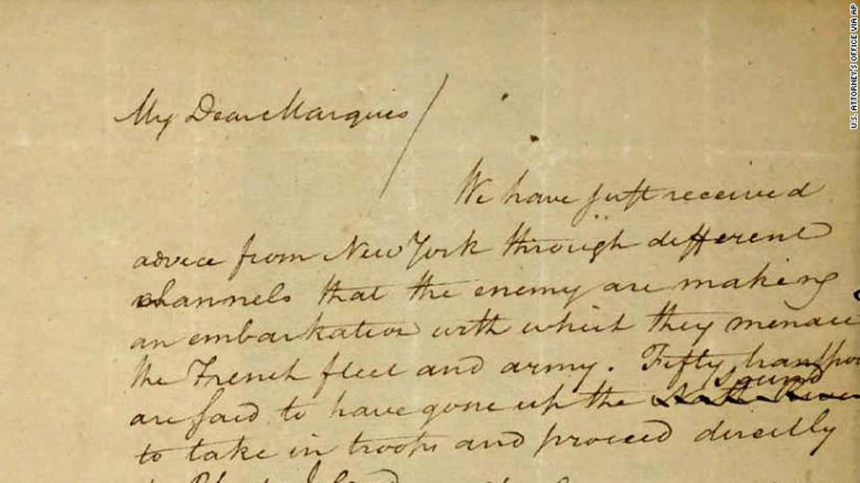 My Dear Marquis
We have just received
advice from New York through different
channels that the enemy are making
an embarkation with which they menace
the French fleet and army. Fifty transpor
sound
are said to have gone up the North River
to take in troops and proceed directly
to Rhode Island
U.S. ATTORNEY'S OFFICE VIA AP